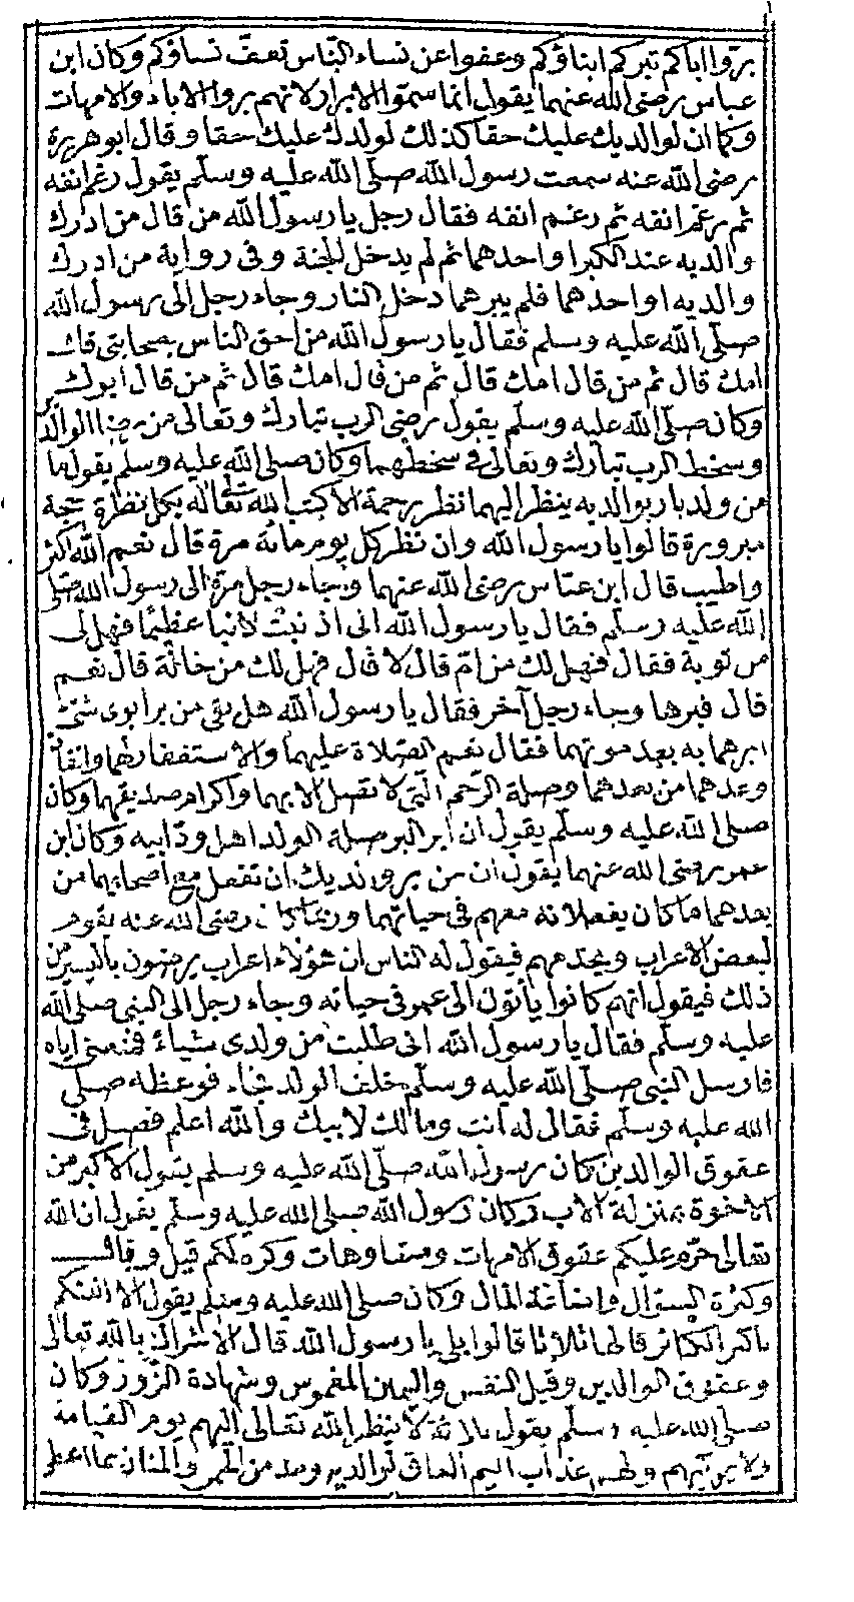 برّوا اباكم تبركم ابناؤكم وعفوا عن نساء النّاس تعفّ نساؤكم وكان ابن
عباس رضى الله عنهما يقول انما سمّوا الابرار لانهم بروا الاباء والامهات
وكما ان لوالديك عليك حقا كذلك لولدك عليك حقا وقال ابو هريرة
رضى الله عنه سمعت رسول الله صلّى الله عليه وسلّم يقول رغم انفه
ثم رغم انفه ثم رغم انفه فقال رجل يا رسول الله من قال من ادرك
والديه عند الكبر او احدهما ثم لم يدخل الجنة وفى رواية من ادرك
والديه او احدهما فلم يبرهما دخل النار وجاء رجل الى رسول الله
صلّى الله عليه وسلم فقال يا رسول الله من احق الناس بصحابتى قال
امك قال ثم من قال امك قال ثم من قال امك قال ثم من قال ابوك
وكان صلّى الله عليه وسلّم يقول رضى الرب تبارك وتعالى من رضا الوالدين
وسخط الرب تبارك وتعالى فى سخطهما وكان صلى الله عليه وسلم يقول ما
من ولد بار بوالديه ينظر اليهما نظر رحمة الا كتب الله تعالى له بكل نظرة حجة
مبرورة قالوا يا رسول الله وان نظر كل يوم مائة مرة قال نعم الله اكثر
واطيب قال ابن عبّاس رضى الله عنهما وجاء رجل مرة الى رسول الله صلى
الله عليه وسلم فقال يا رسول الله انى اذنبت ذنبا عظيما فهل لى
من توبة فقال فهل لك من امّ قال لا قال فهل لك من خالة قال نعم
قال فبرها وجاء رجل آخر فقال يا رسول الله هل بقى من بر ابوى شئ
ابرهما به بعد موتهما فقال نعم الصّلاة عليهما والاستغفار لهما وانفاذ
وعدهما من بعدهما وصلة الرّحم الّتى لا تصل الا بهما واكرام صديقهما وكان
صلى الله عليه وسلّم يقول ان ابر البر صلة الولد اهل ودّ ابيه وكان ابن
عمر رضى الله عنهما يقول ان من بر والديك ان تفعل مع اصحابهما من
بعدهما ما كان يفعلانه معهم فى حياتهما وربما كان رضى الله عنه يقوم
لبعض الاعراب ويخدمهم فيقول له الناس ان هؤلاء اعراب يرضون باليسير من
ذلك فيقول انهم كانوا يأتون الى عمر فى حياته وجاء رجل الى النبى صلى الله
عليه وسلّم فقال يا رسول الله انى طلبت من ولدى شيئا فمنعنى اياه
فارسل النبى صلّى الله عليه وسلّم خلف الولد فجاء فوعظه صلى
الله عليه وسلّم فقال له انت ومالك لابيك والله اعلم فصل فى
عقوق الوالدين كان رسول الله صلّى الله عليه وسلم يقول الاكبر من
الاخوة بمنزلة الاب وكان رسول الله صلى الله عليه وسلّم يقول ان الله
تعالى حرّم عليكم عقوق الامهات ومنعا وهات وكره لكم قيل وقال
وكثرة السؤال واضاعة المال وكان صلى الله عليه وسلم يقول الا انبئكم
باكبر الكبائر قالها ثلاثا قالوا بلى يا رسول الله قال الاشراك بالله تعالى
وعقوق الوالدين وقتل النفس واليمين الغموس وشهادة الزّور وكان
صلى الله عليه وسلّم يقول ثلاثة لا ينظر الله تعالى اليهم يوم القيامة
ولا يزكيهم ولهم عذاب اليم العاق لوالديه ومدمن الخمر والمنان بما اعطى